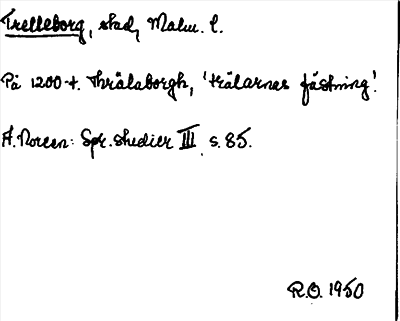 Trelleborg, stad, Malm. l.
På 1200-t. Thrälaborgh, 'trälarnes fästning'.
A. Noreen: Spr. studier III, s. 85.
R.O. 1950